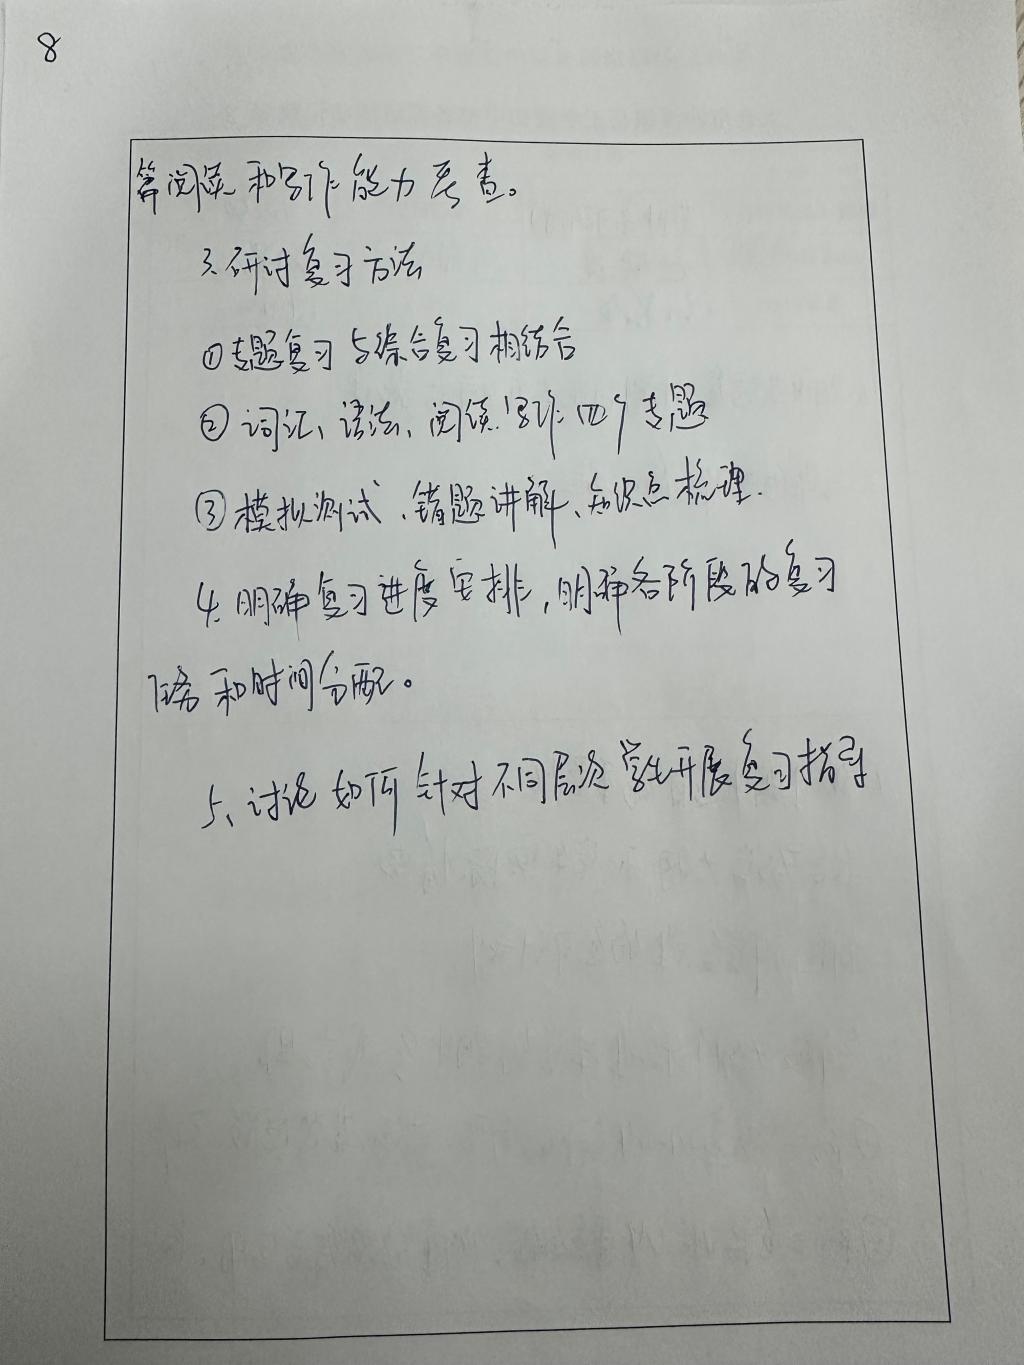 8
等阅读和写作能力考查。
3.研讨复习方法
①专题复习与综合复习相结合
②词汇、语法、阅读.写作四个专题
③模拟测试、错题讲解、知识点梳理.
4.明确复习进度安排,明确各阶段的复习
任务和时间分配。
5、讨论如何针对不同层次学生开展复习指导